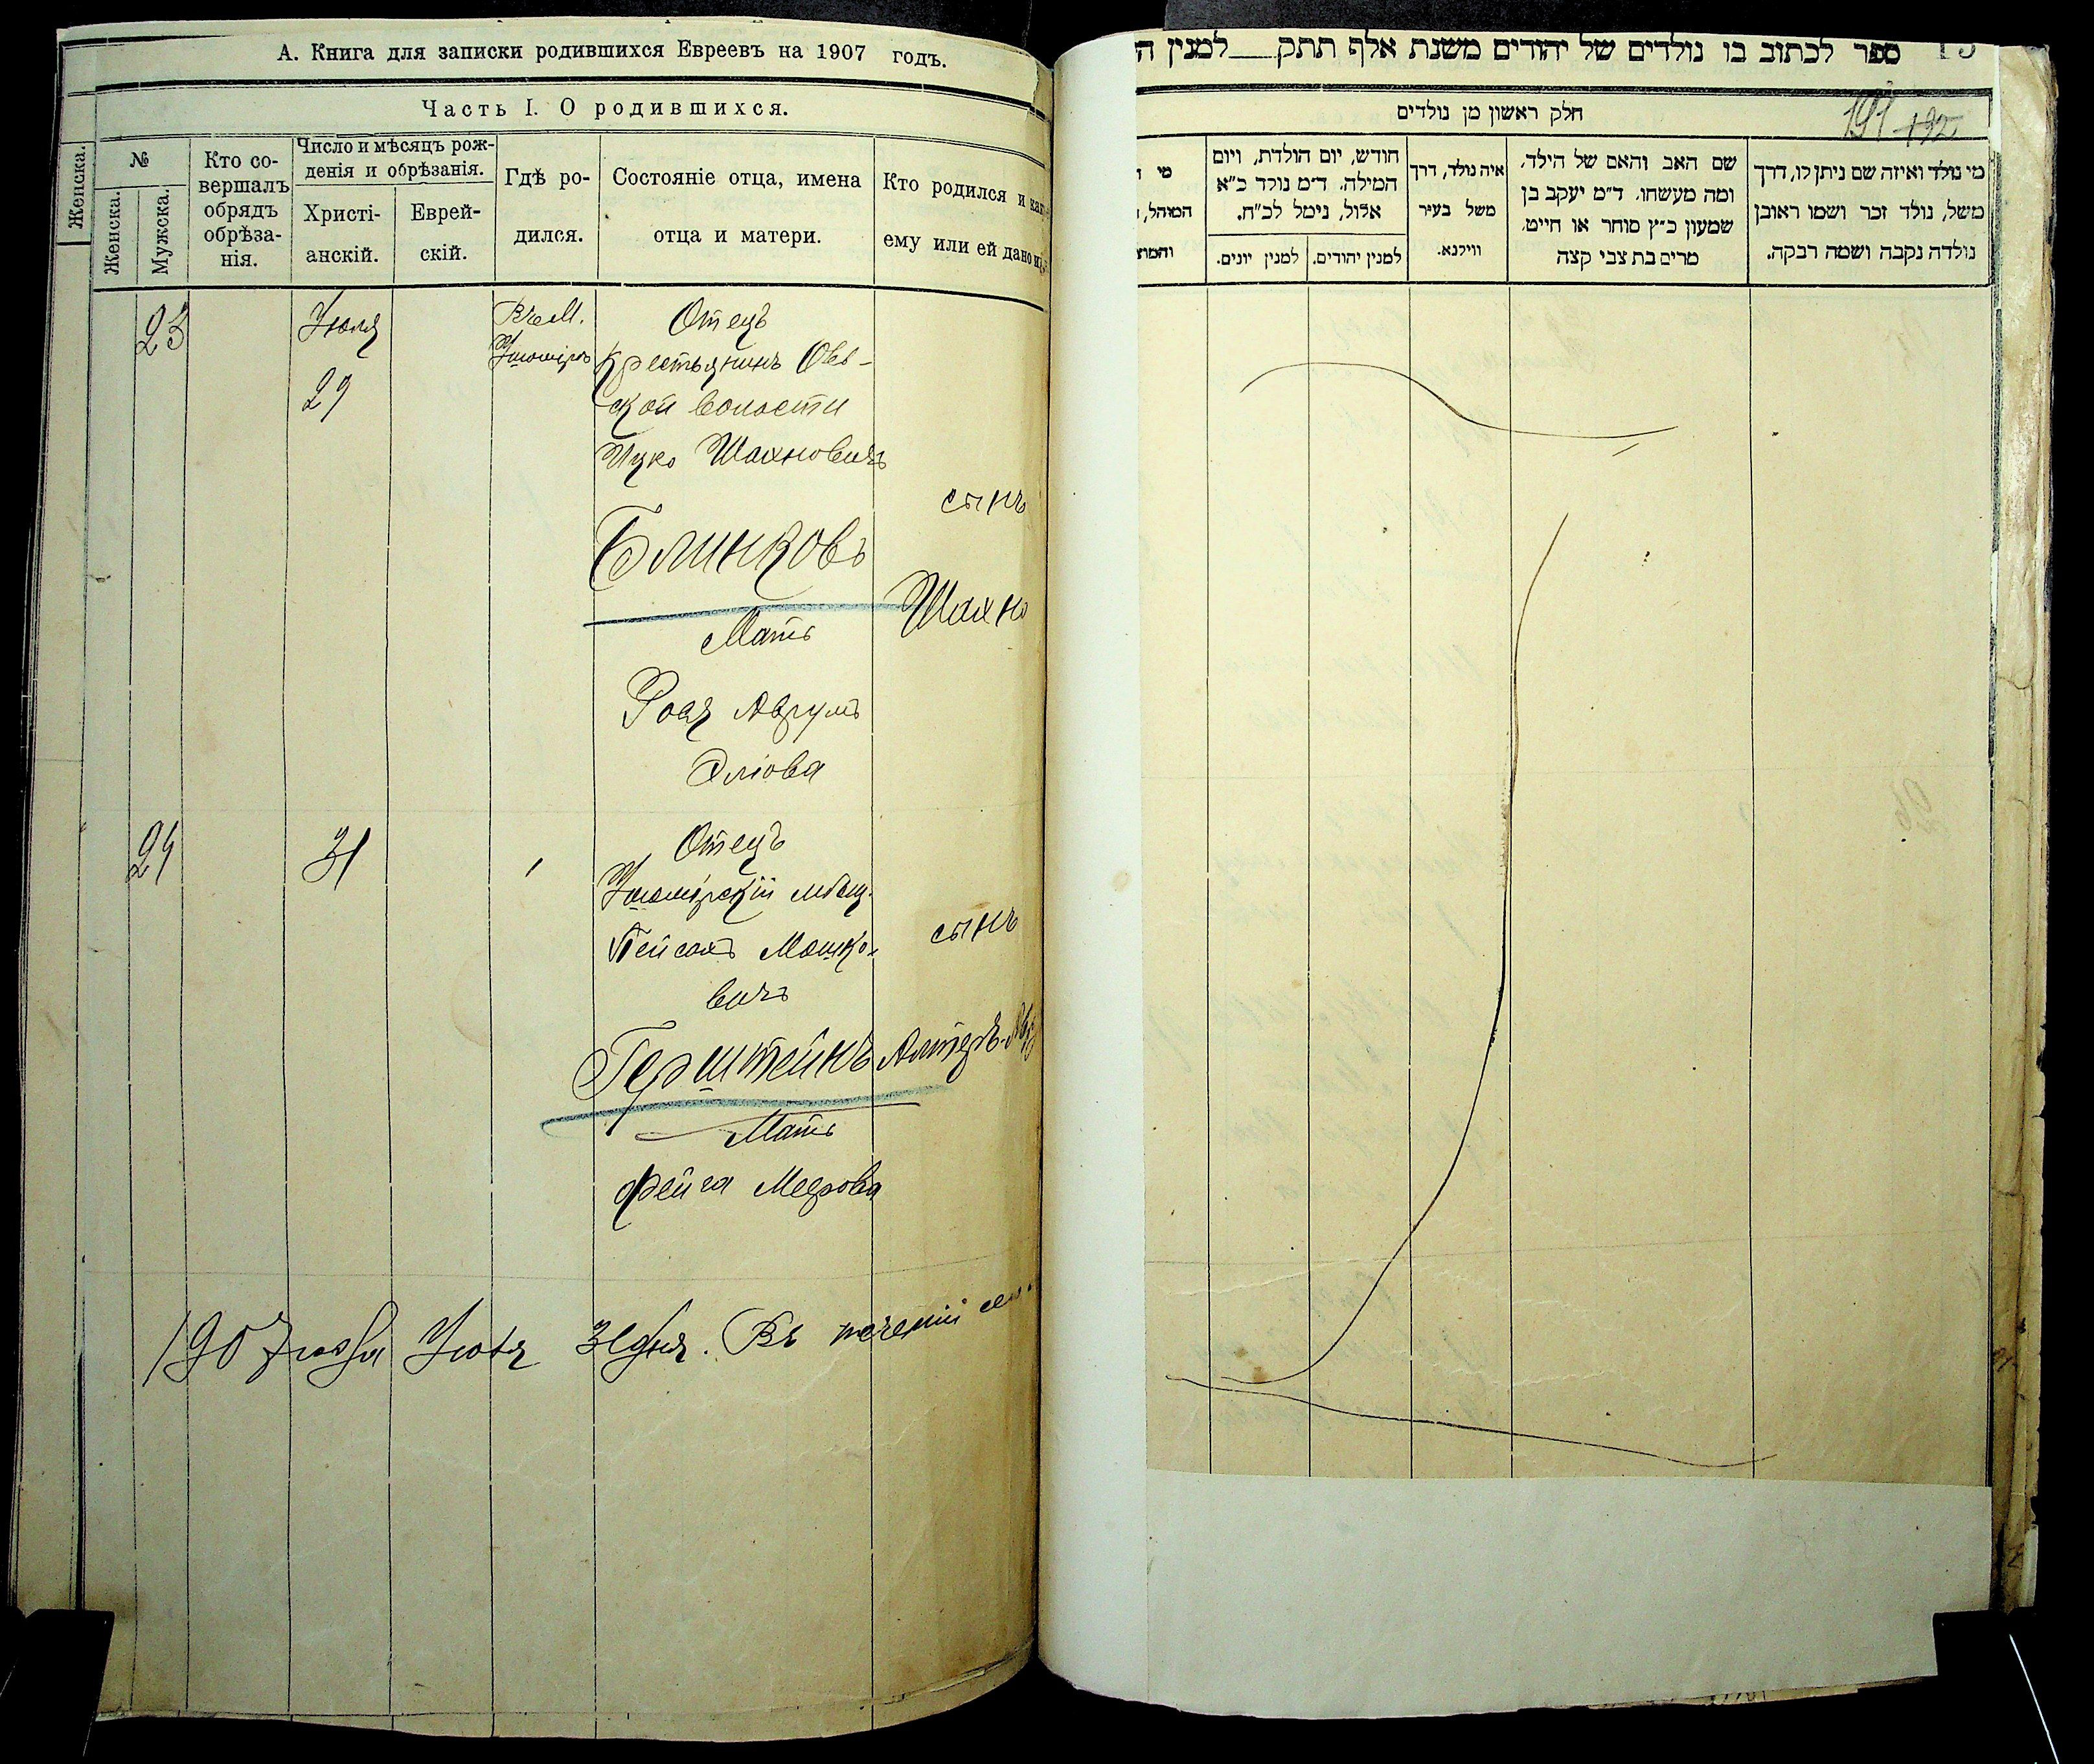 А. Книга для записки родившихся Евреевъ на 1907 годъ.
Часть I. О родившихся.
Женска.
№
Женска.
Мужска.
Кто со-
вершалъ
обрядъ
обрѣза-
нія.
Число и мѣсяцъ рож-
денія и обрѣзанія.
Христі-
анскій.
Еврей-
скій.
Гдѣ ро-
дился.
Состояніе отца, имена
отца и матери.
Кто родился и
ему или ей дано
23
Июля
29
Въ М.
Отецъ
Крестьянинъ
ской волости
Ицко Шахновичъ
Блинковъ
Мать
Роза Аврумъ
Эліова
сынъ
Шахно
24
31
Отецъ
Ушомірскій мѣщ.
Пейсахъ Мошко-
вичъ
Герштейнъ
Мать
Фейга Меерова
сынъ
Алтеръ-
1907 года Июля 31 дня. Въ теченіи
ספר לכתוב בו נולדים של יהודים משנת אלף תתק למנין
191 192
חלק ראשון מן נולדים
מי נולד ואיזה שם ניתן לו, דרך
משל, נולד זכר ושמו ראובן
נולדה נקבה ושמה רבקה.
שם האב והאם של הילד,
ומה מעשהו. ד״מ יעקב בן
שמעון כ״ץ סוחר או חייט,
מרים בת צבי קצה
איה נולד, דרך
משל בעיר
ווילנא.
חודש, יום הולדת, ויום
המילה. ד״מ נולד כ״א
אלול, נימל לכ״ח.
למנין יהודים.
למנין יונים.
מי
המוהל,